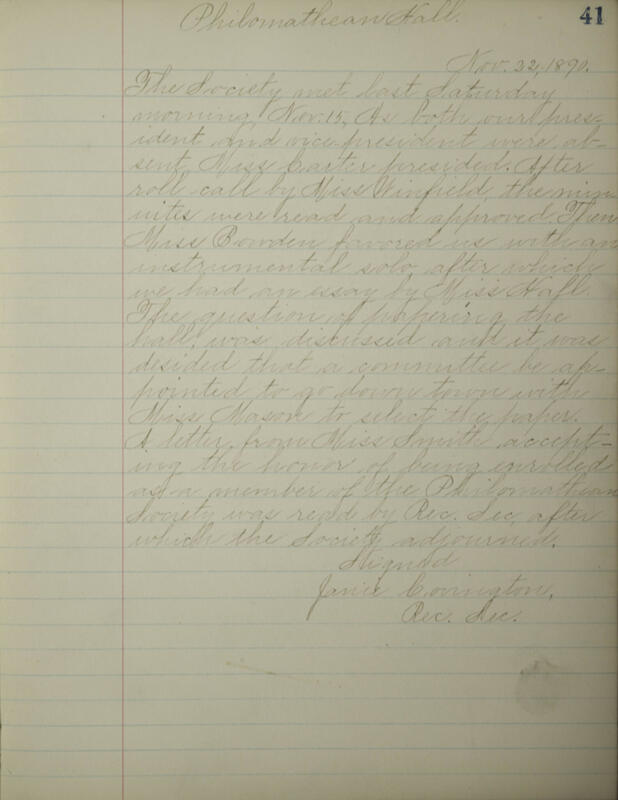 Philomathean Hall.
41
Nov. 22, 1890.
The Society met last Saturday
morning, Nov. 15, As both our pres-
ident and vice president were ab-
sent Miss Carter presided. After
roll call by Miss Winfield, the min-
utes were read and approved. Then
Miss Bowden favored us with an
instrumental solo, after which
we had an essay by Miss Hall.
The question of papering the
hall, was discussed and it was
decided that a committee be ap-
pointed to go down town with
Miss Mason to select the paper.
A letter from Miss Smith accept-
ing the honor of being enrolled
as a member of the Philomathean
Society was read by Rec. Sec, after
which the Society adjourned.
Signed
Janie Covington,
Rec. Sec.